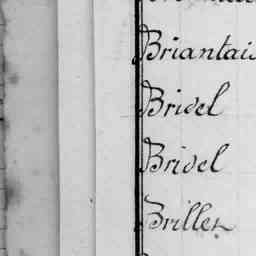 Briantais
Bridel
Bridel
Briller